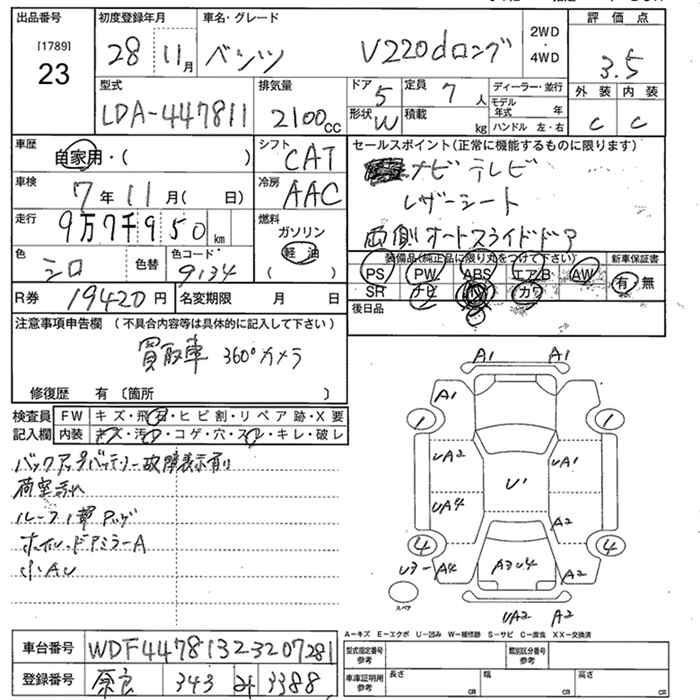 出品番号 初度登録年月 車名・グレード 2WD ・ 4WD 評価点
[1789] 23 28 11月 ベンツ V220dロング 3.5
型式 排気量 ドア 5 定員 7人 ディーラー・並行 外装 内装
LDA-447811 2100cc 形状 W 積載 kg モデル年式 年 C C
ハンドル 左・右
車歴 自家用・( ) シフト CAT セールスポイント(正常に機能するものに限ります)
ナビ テレビ
車検 7年 11月( 日) 冷房 AAC レザーシート
走行 9万7千950km 燃料 ガソリン 軽油 ( ) 両側オートスライドドア
色 シロ 色替 色コード 9134 装備品(純正品に限り丸をつけて下さい) 新車保証書
PS PW ABS エアB AW 有・無
R券 19420円 名変期限 月 日 SR ナビ カワ
後日品
注意事項申告欄 (不具合内容等は具体的に記入して下さい)
買取車 360°カメラ
修復歴 有 〔箇所 〕
検査員 FW キズ・飛石・ヒビ割・リペア跡・X要
記入欄 内装 キズ・汚れ・コゲ・穴・スレ・キレ・破レ
バックアップバッテリー故障表示有り
荷室汚れ
ルーフ
ホイル・ドアミラーA
小AU
A1 A1
A1
1 1
UA2 UA1
U1
UA4 A2
4 4
U3- A4 A3U4 A2
スペア
UA2 A2
A-キズ E-エクボ U-凹み W-補修跡 S-サビ C-腐食 XX-交換済
車台番号 WDF44781323207281 型式指定番号 参考 類別区分番号 参考
登録番号 奈良 343 3388 車庫証明用 参考 長さ CR 幅 CR 高さ CR